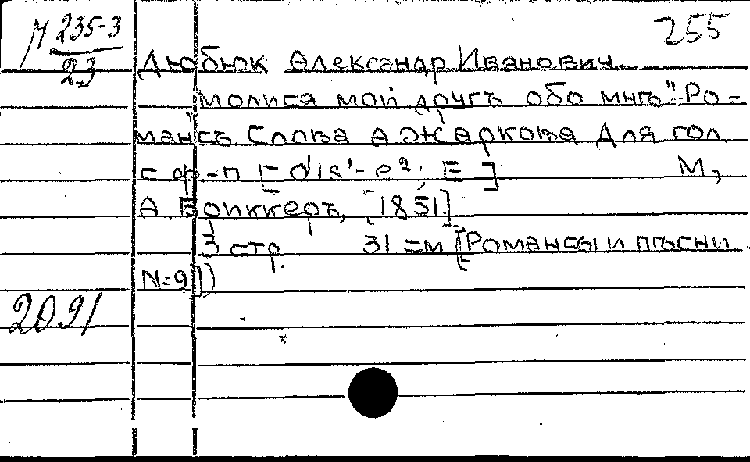 М 235-3
23
255
Дюбюк Александр Иванович.
"Молися мой другъ обо мнѣ" Ро-
мансъ Слова А Жаркова Для гол
с ф-п [ dis¹-e²; E ] М,
А. Брикнеръ, [1851]
3 стр. 31 см (Романсы и пѣсни
№9])
2091